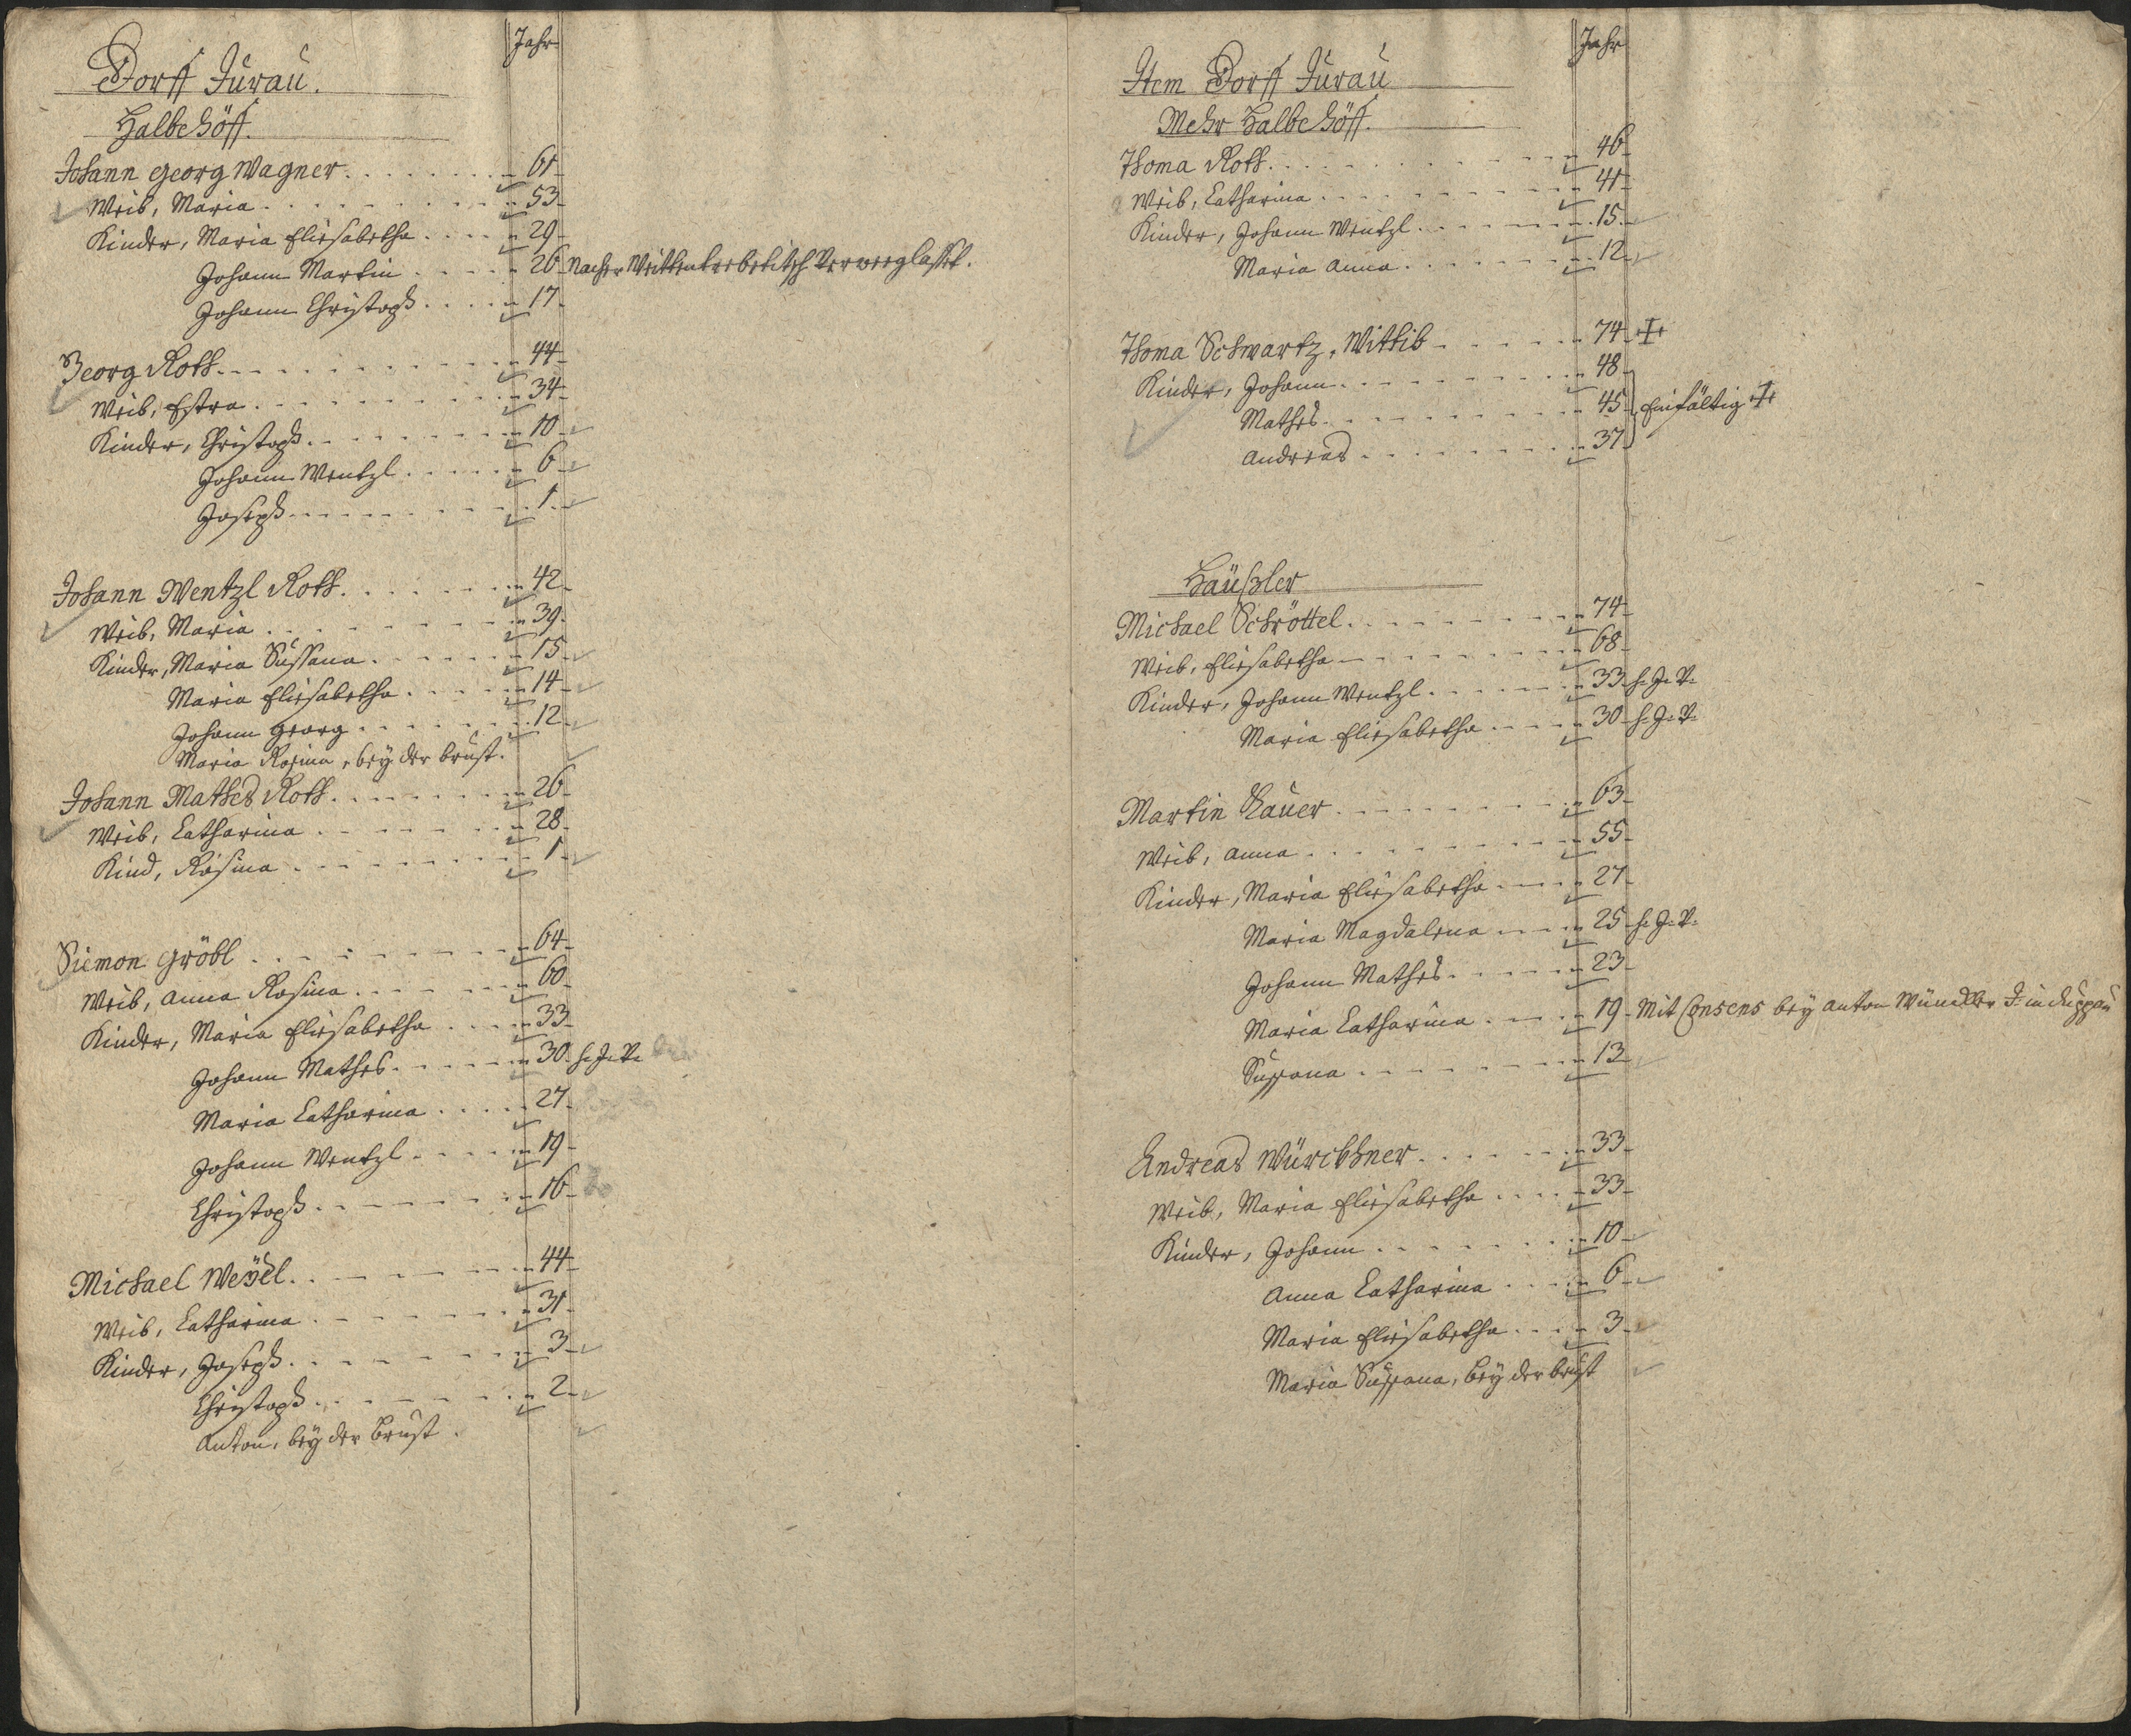 Jahr
Dorff Turau.
Halbe Höff.
Johann Georg Wagner 61
Weib, Maria 53
Kinder, Maria Eliesabetha 29
Johann Martin 26 Nacher
Johann Christoph 17
Georg Roth 44
Weib, Estra 34
Kinder, Christoph 10
Johann Wentzl 6
Joseph 1
Johann Wentzl Roth 42
Weib, Maria 39
Kinder, Maria Sussana 15
Maria Eliesabetha 14
Johann Georg 12
Maria Rosina, bey der brust.
Johann Mathes Roth 26
Weib, Catharina 28
Kind, Rosina 1
Siemon Gröbl 64
Weib, Anna Rosina 60
Kinder, Maria Eliesabetha 33
Johann Mathes 30
Maria Catharina 27
Johann Wentzl 19
Christoph 16
Michael Weÿel 44
Weib, Catharina 31
Kinder, Joseph 3
Christoph 2
Anton, bey der Brust.
Jahr
Item Dorff Turau
Mehr Halbe Höff.
Thoma Roth 46
Weib, Catharina 41
Kinder, Johann Wentzl 15
Maria Anna 12
Thoma Schwartz, Wittib 74
Kinder, Johann 48
Mathes 45 Einfältig
Andreas 37
Häußler
Michael Schröttel 74
Weib, Eliesabetha 68
Kinder, Johann Wentzl 33
Maria Eliesabetha 30
Martin 63
Weib, Anna 55
Kinder, Maria Eliesabetha 27
Maria Magdalena 25
Johann Mathes 23
Maria Catharina 19 Mit Consens bey Anton in Duppau
Sussana 13
Andreas Würckhner 33
Weib, Maria Eliesabetha 33
Kinder, Johann 10
Anna Catharina 6
Maria Eliesabetha 3
Maria Sussana, bey der brust